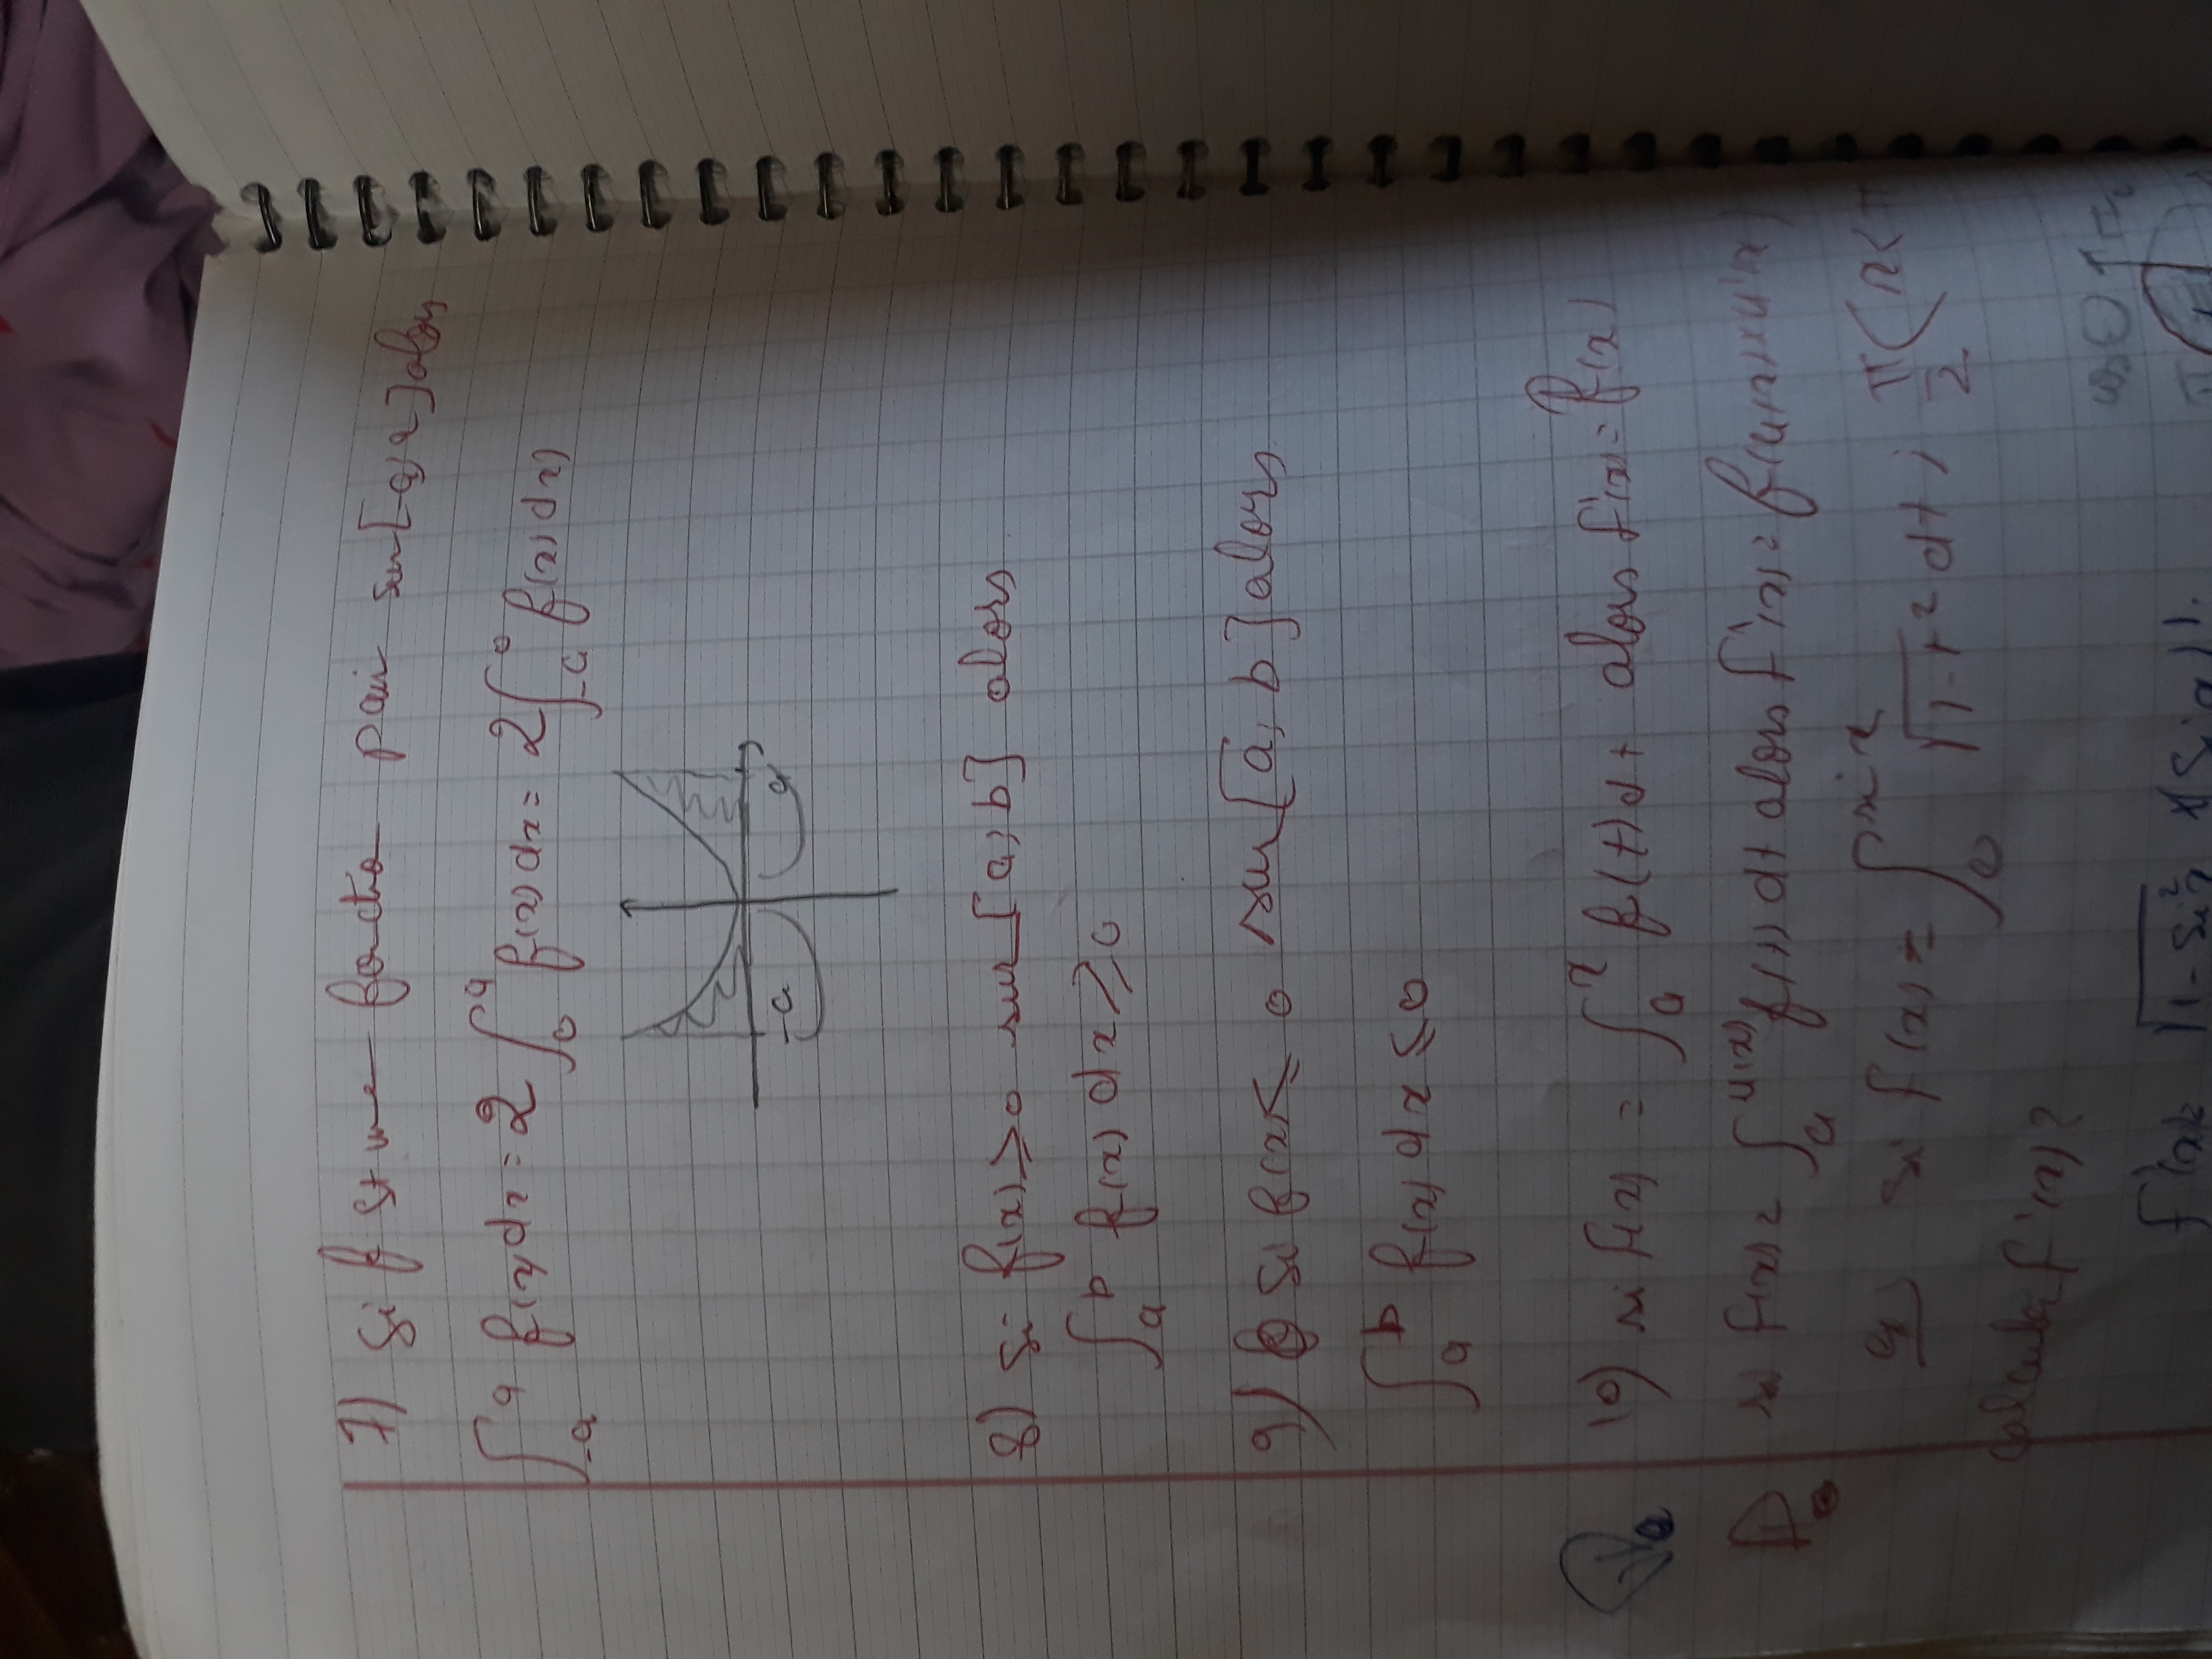 7) Si f st une fonctio pair sur [-a, a] alors
∫_{-a}^{a} f(x) dx = 2 ∫_{0}^{a} f(x) dx = 2 ∫_{-a}^{0} f(x) dx)
-a a
8) si f(x) ≥ 0 sur [a; b] alors
∫_{a}^{b} f(x) dx ≥ 0
9) Si f(x) ≤ 0 sur [a, b] alors
∫_{a}^{b} f(x) dx ≤ 0
10) si F(x) = ∫_{a}^{x} f(t) dt alors F'(x) = f(x)
si F(x) = ∫_{a}^{u(x)} f(t) dt alors F'(x) = f(u(x)) × u'(x)
si F(x) = ∫_{0}^{sin x} √1-t² dt ; π/2 < x < π
calculer F'(x) ?
cos
F'(x) = √1-sin²x × (sin x)'.